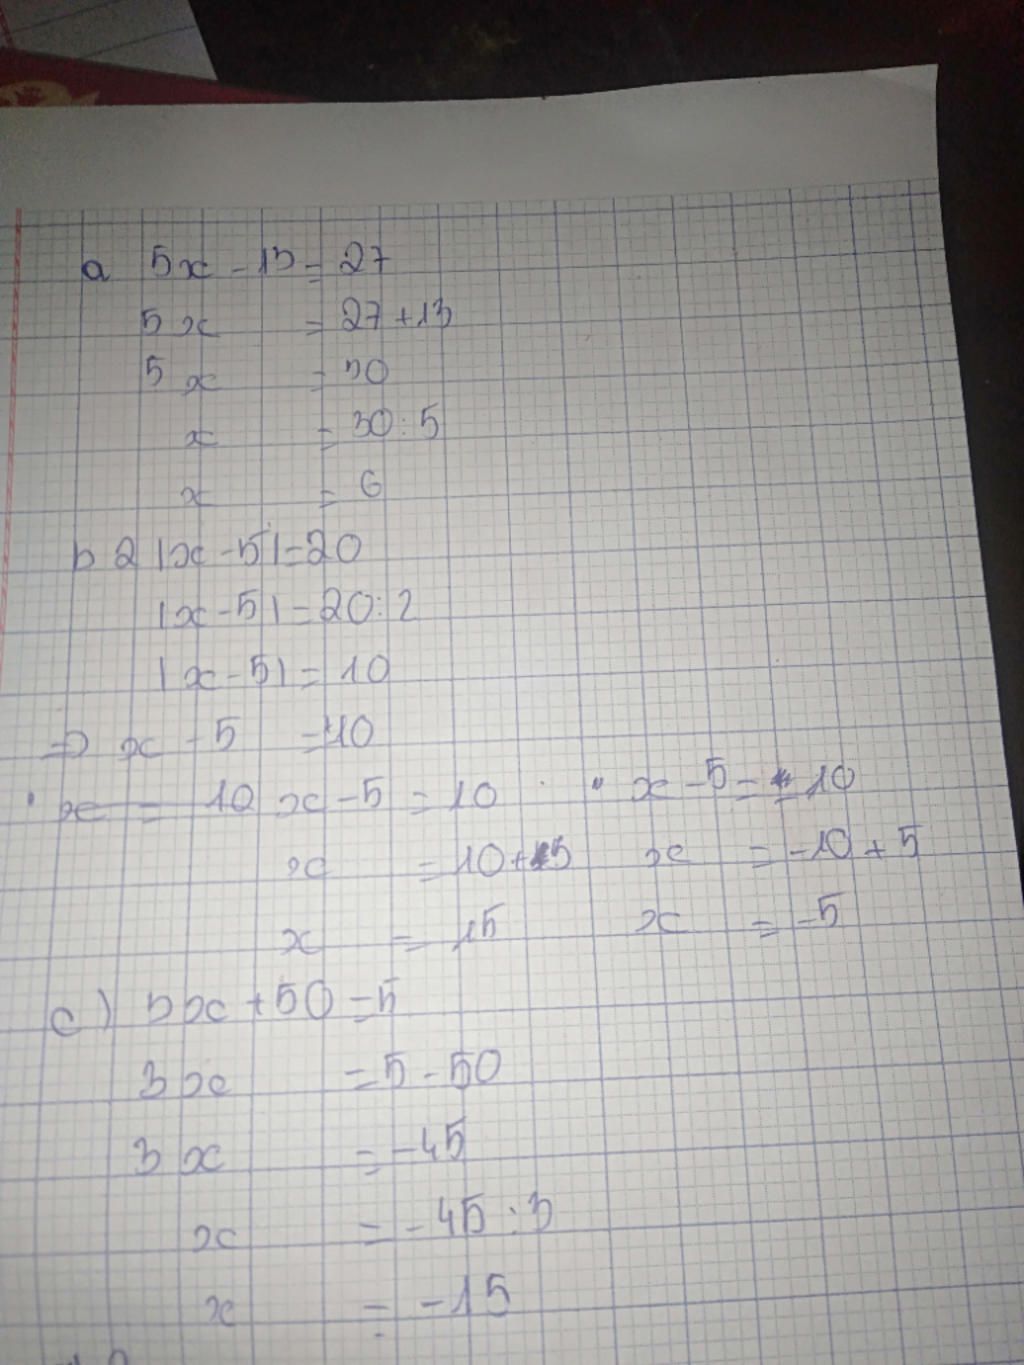 a 5x - 13 = 27
5x = 27 + 13
5x = 30
x = 30 : 5
x = 6
b 2 |x - 5| = 20
|x - 5| = 20 : 2
|x - 5| = 10
=> x - 5 = 10
x = 10 x - 5 = 10 " x - 5 = - 10
x = 10 + 5 x = -10 + 5
x = 15 x = -5
c) 3x + 50 = 5
3x = 5 - 50
3x = -45
x = -45 : 3
x = -15